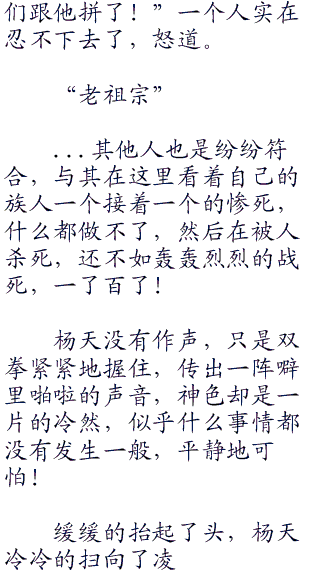 们跟他拼了！”一个人实在
忍不下去了，怒道。
“老祖宗”
...其他人也是纷纷符
合，与其在这里看着自己的
族人一个接着一个的惨死，
什么都做不了，然后在被人
杀死，还不如轰轰烈烈的战
死，一了百了！
杨天没有作声，只是双
拳紧紧地握住，传出一阵噼
里啪啦的声音，神色却是一
片的冷然，似乎什么事情都
没有发生一般，平静地可
怕！
缓缓的抬起了头，杨天
冷冷的扫向了凌